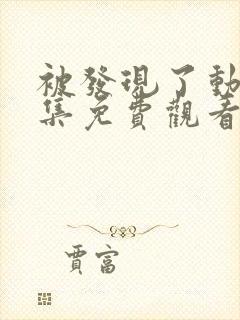 被發現了動
集免費觀看
賈富